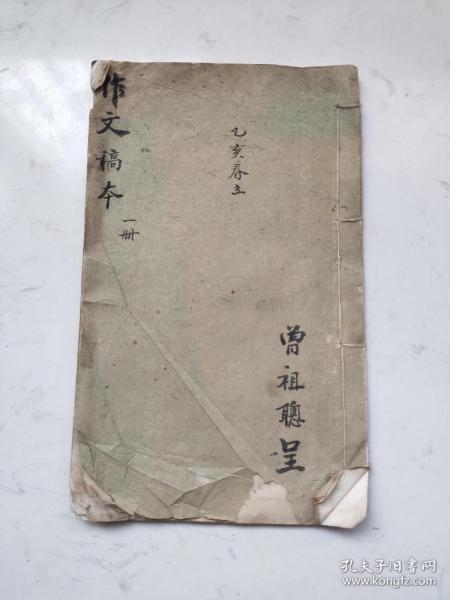 作文稿本
一册
乙亥春立
曾祖聰呈
孔夫子旧书网
www.kongfz.com